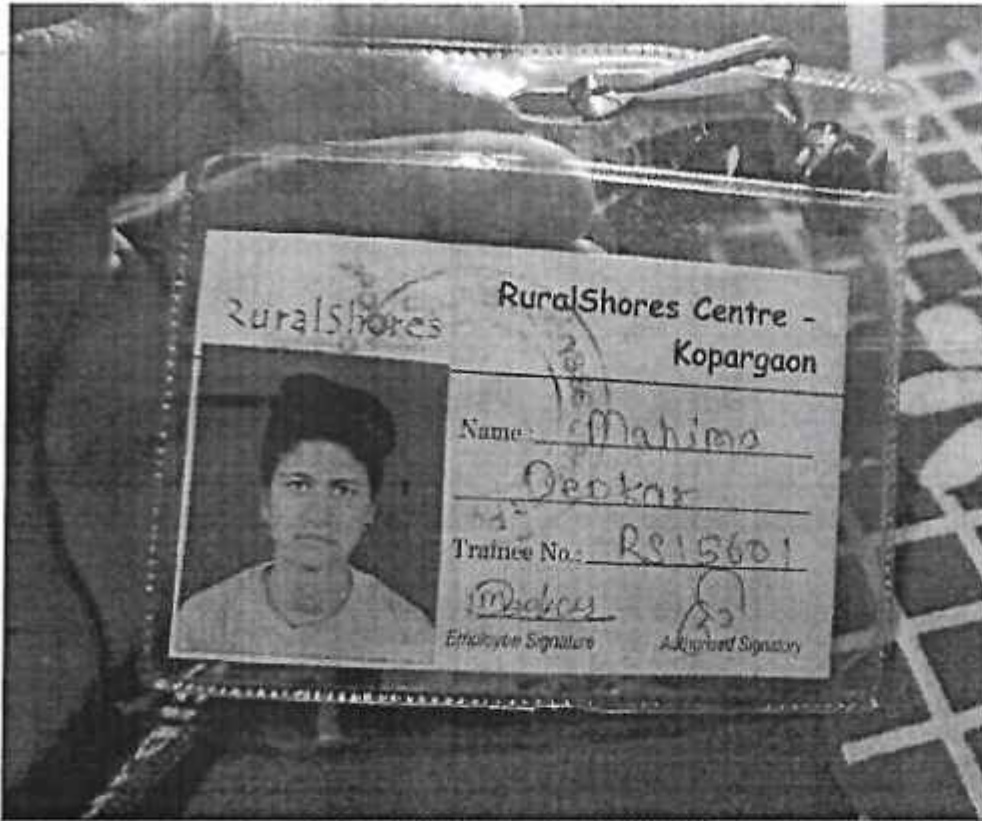 RuralShores
RuralShores Centre -
Kopargaon
Name : Mahima
Deokar
Trainee No.: RS15601
Employee Signature
Authorised Signatory